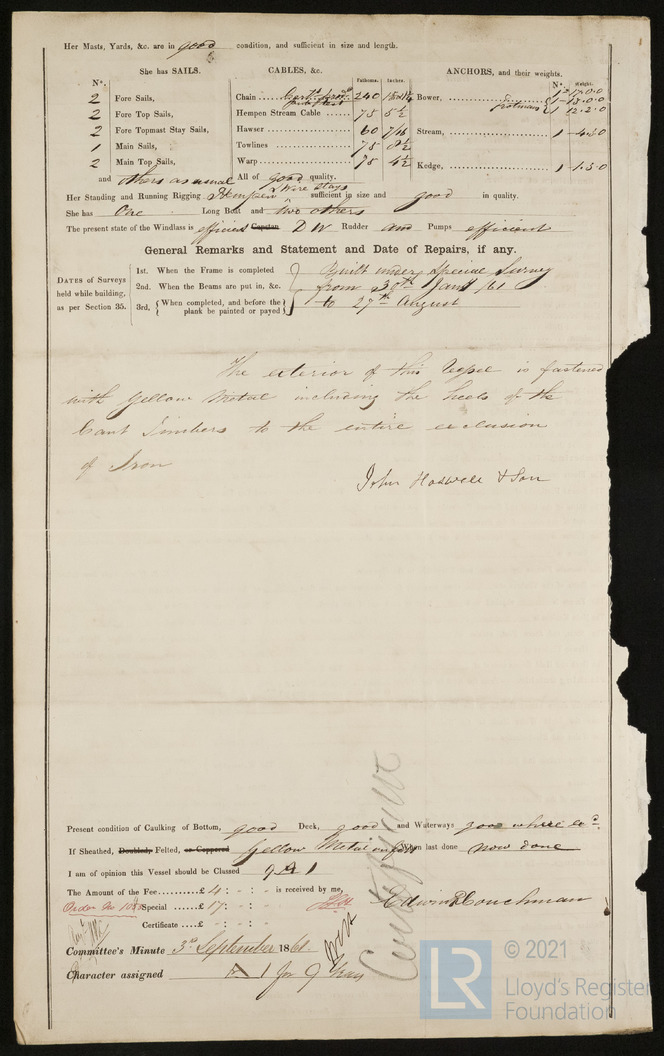 Her Masts, Yards, &c. are in good condition, and sufficient in size and length.
She has SAILS. CABLES, &c. ANCHORS, and their weights.
N°. Fathoms. Inches. N°. Weight.
2 Fore Sails, Chain 240 Bower,
2 Fore Top Sails, Hempen Stream Cable 75 5½ Trotmans 1 12.2.0
2 Fore Topmast Stay Sails, Hawser 60 7/16 Stream, 1
1 Main Sails, Towlines 75 8½
2 Main Top Sails, Warp 75 4½ Kedge, 1
and others as usual All of good quality.
Her Standing and Running Rigging Hempen & Wire stays sufficient in size and good in quality.
She has One Long Boat and two others
The present state of the Windlass is efficient Capstan D W Rudder and Pumps efficient
General Remarks and Statement and Date of Repairs, if any.
DATES of Surveys held while building, as per Section 35.
1st. When the Frame is completed Built under Special Survey
2nd. When the Beams are put in, &c. from 30th Jany /61
3rd, When completed, and before the plank be painted or payed to 27th August
The exterior of this Vessel is fastened
with Yellow Metal including the heels of the
Cant Timbers to the entire exclusion
of Iron
John Haswell & Son
Present condition of Caulking of Bottom, good Deck, good and Waterways good where
If Sheathed, Doubled, Felted, or Coppered Yellow Metal When last done now done
I am of opinion this Vessel should be Classed 9 A 1
The Amount of the Fee £ 4 : - : - is received by me,
Order No Special £ 17 : - : - Edwin R Couchman
Certificate £ - : - : -
Committee's Minute 3rd September 1861.
Character assigned A 1 for 9 Years
© 2021
LR
Lloyd's Register
Foundation